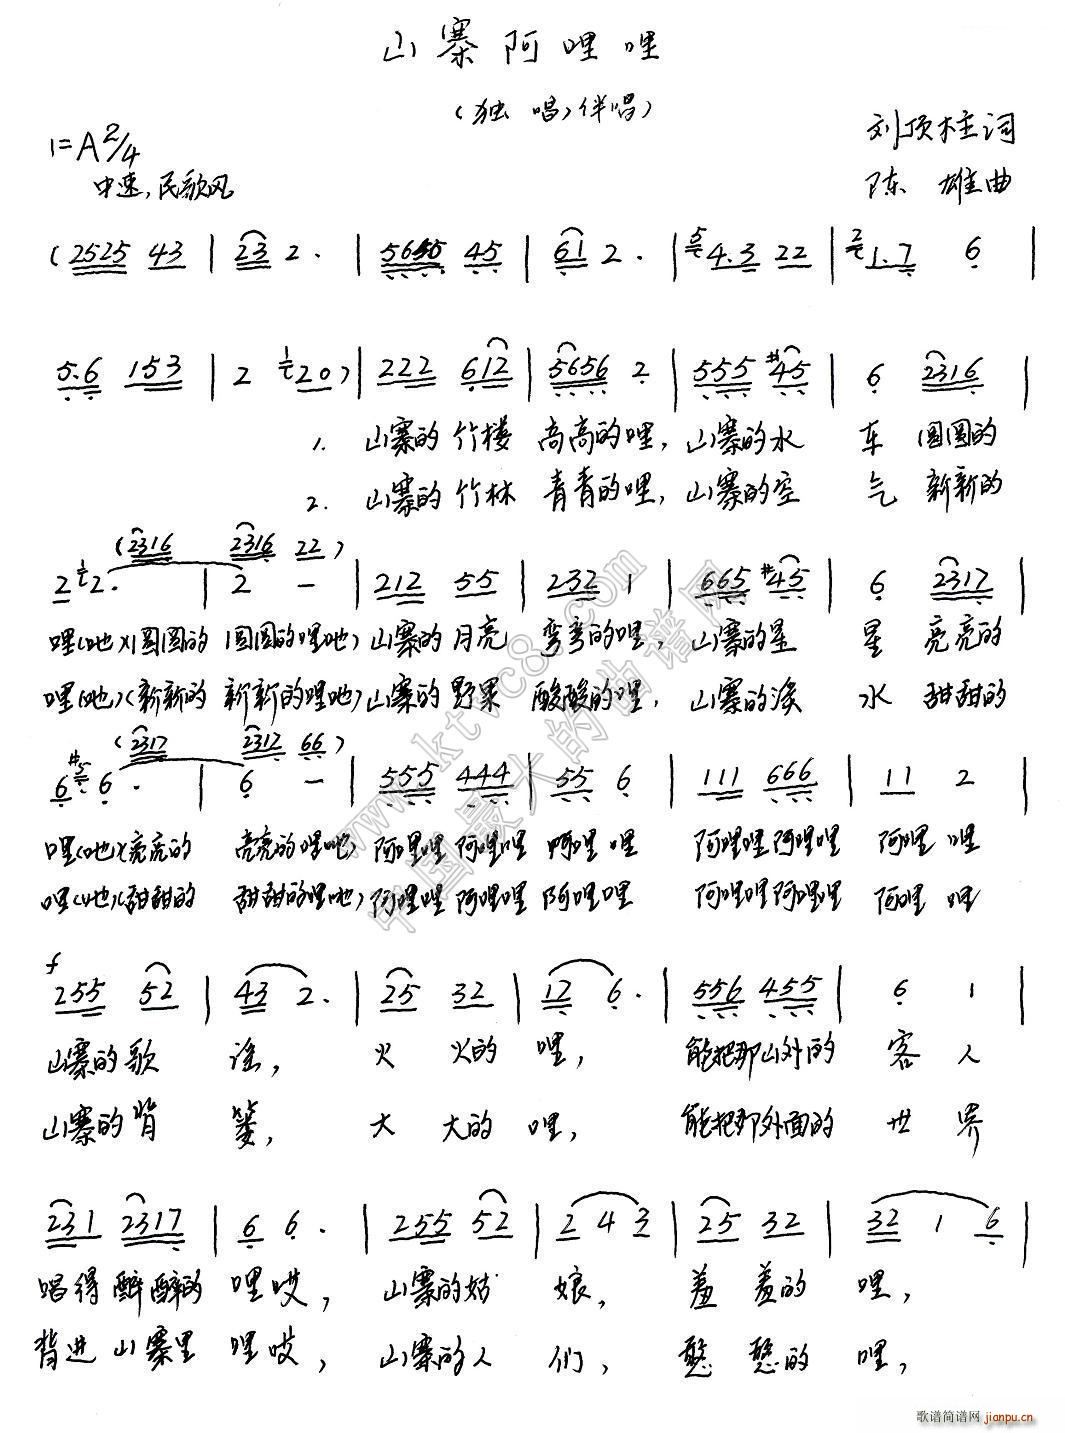 山寨阿哩哩
(独 唱、伴唱)
1=A 2/4
中速,民歌风
刘顶柱词
陈 雄曲
(2525 43 | 23 2. | 5655 45 | 61 2. | 5 4.3 22 | 2 1.7 6 |
5.6 153 | 2 1 20) | 222 612 | 5656 2 | 555 #45 | 6 2316 |
1. 山寨的竹楼 高高的哩, 山寨的水 车 圆圆的
2. 山寨的竹林 青青的哩, 山寨的空 气 新新的
(2316 2316 22)
2 1 2. | 2 - | 212 55 | 232 1 | 665 #45 | 6 2317 |
哩(吔)(圆圆的 圆圆的哩吔) 山寨的月亮 弯弯的哩, 山寨的星 星 亮亮的
哩(吔)(新新的 新新的哩吔) 山寨的野果 酸酸的哩, 山寨的溪 水 甜甜的
(2317 2312 66)
6 #5 6. | 6 - | 555 444 | 55 6 | 111 666 | 11 2 |
哩(吔)(亮亮的 亮亮的哩吔) 阿哩哩 阿哩哩 阿哩 哩 阿哩哩阿哩哩 阿哩 哩
哩(吔)(甜甜的 甜甜的哩吔) 阿哩哩 阿哩哩 阿哩哩 阿哩哩阿哩哩 阿哩 哩
f
255 52 | 43 2. | 25 32 | 12 6. | 556 455 | 6 1 |
山寨的歌 谣, 火 火的 哩, 能把那山外的 客 人
山寨的背 篓, 大 大的 哩, 能把那外面的 世 界
231 2317 | 6 6. | 255 52 | 2 4 3 | 25 32 | 32 1 6 |
唱得醉醉的 哩哎, 山寨的姑 娘, 羞 羞的 哩,
背进山寨里 哩哎, 山寨的人 们, 憨 憨的 哩,
www.ktvc8.com
中国最火的曲谱网
歌谱简谱网
jianpu.cn